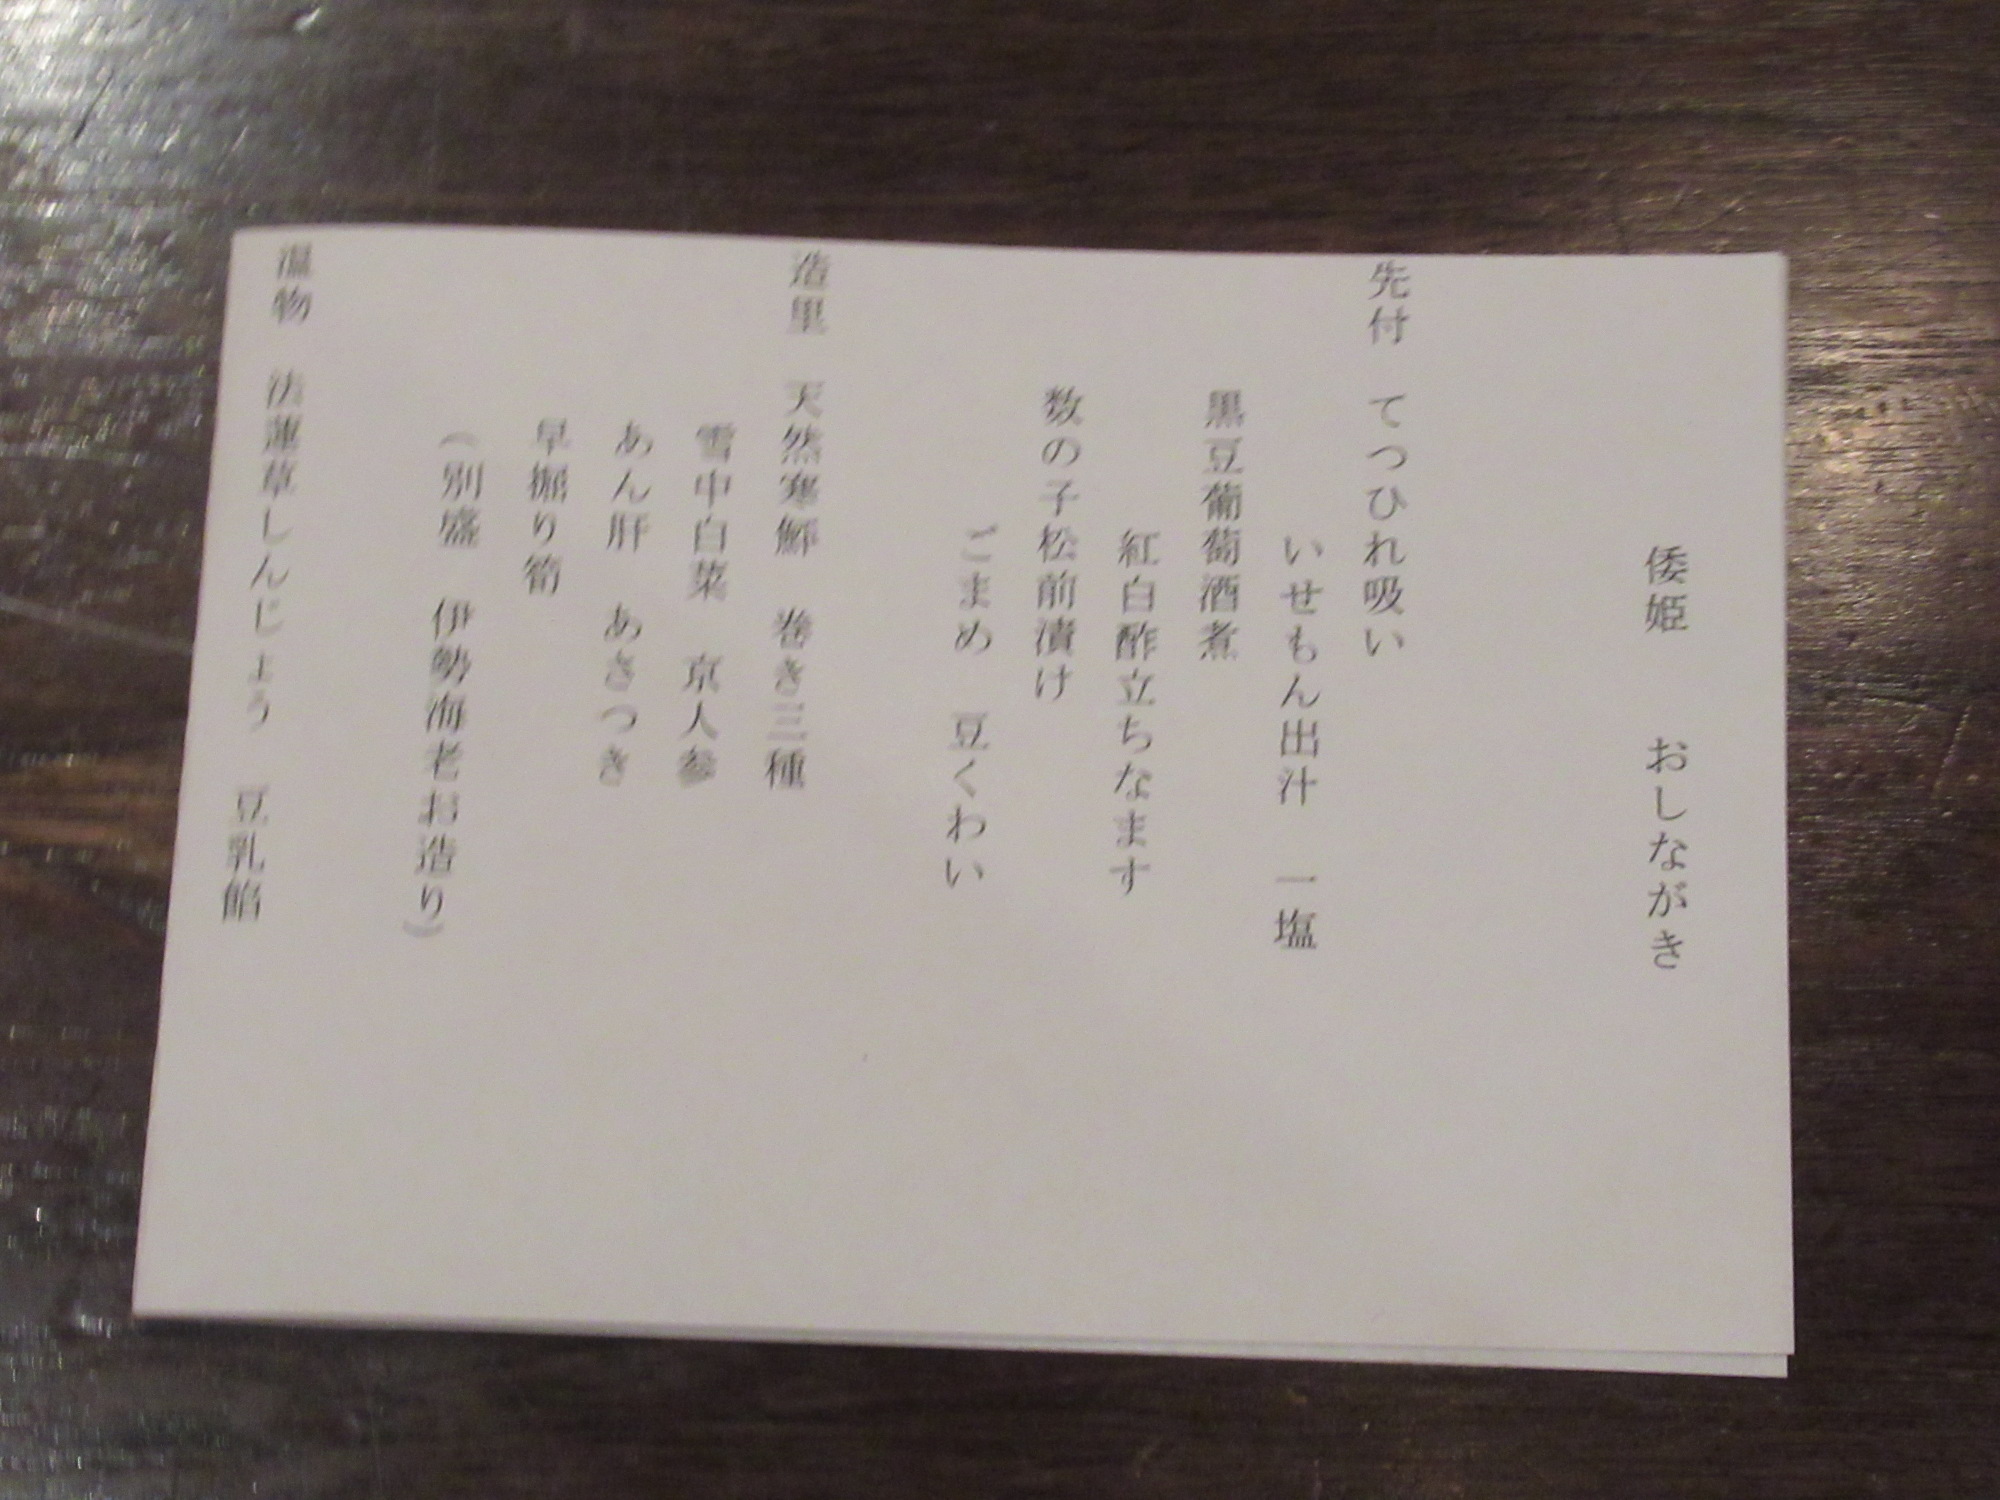 倭姫　おしながき
先付　てつひれ吸い
いせもん出汁　一塩
黒豆葡萄酒煮
紅白酢立ちなます
数の子松前漬け
ごまめ　豆くわい
造里　天然寒鰤　巻き三種
雪中白菜　京人参
あん肝　あさつき
早掘り筍
（別盛　伊勢海老お造り）
温物　法蓮草しんじょう　豆乳餡